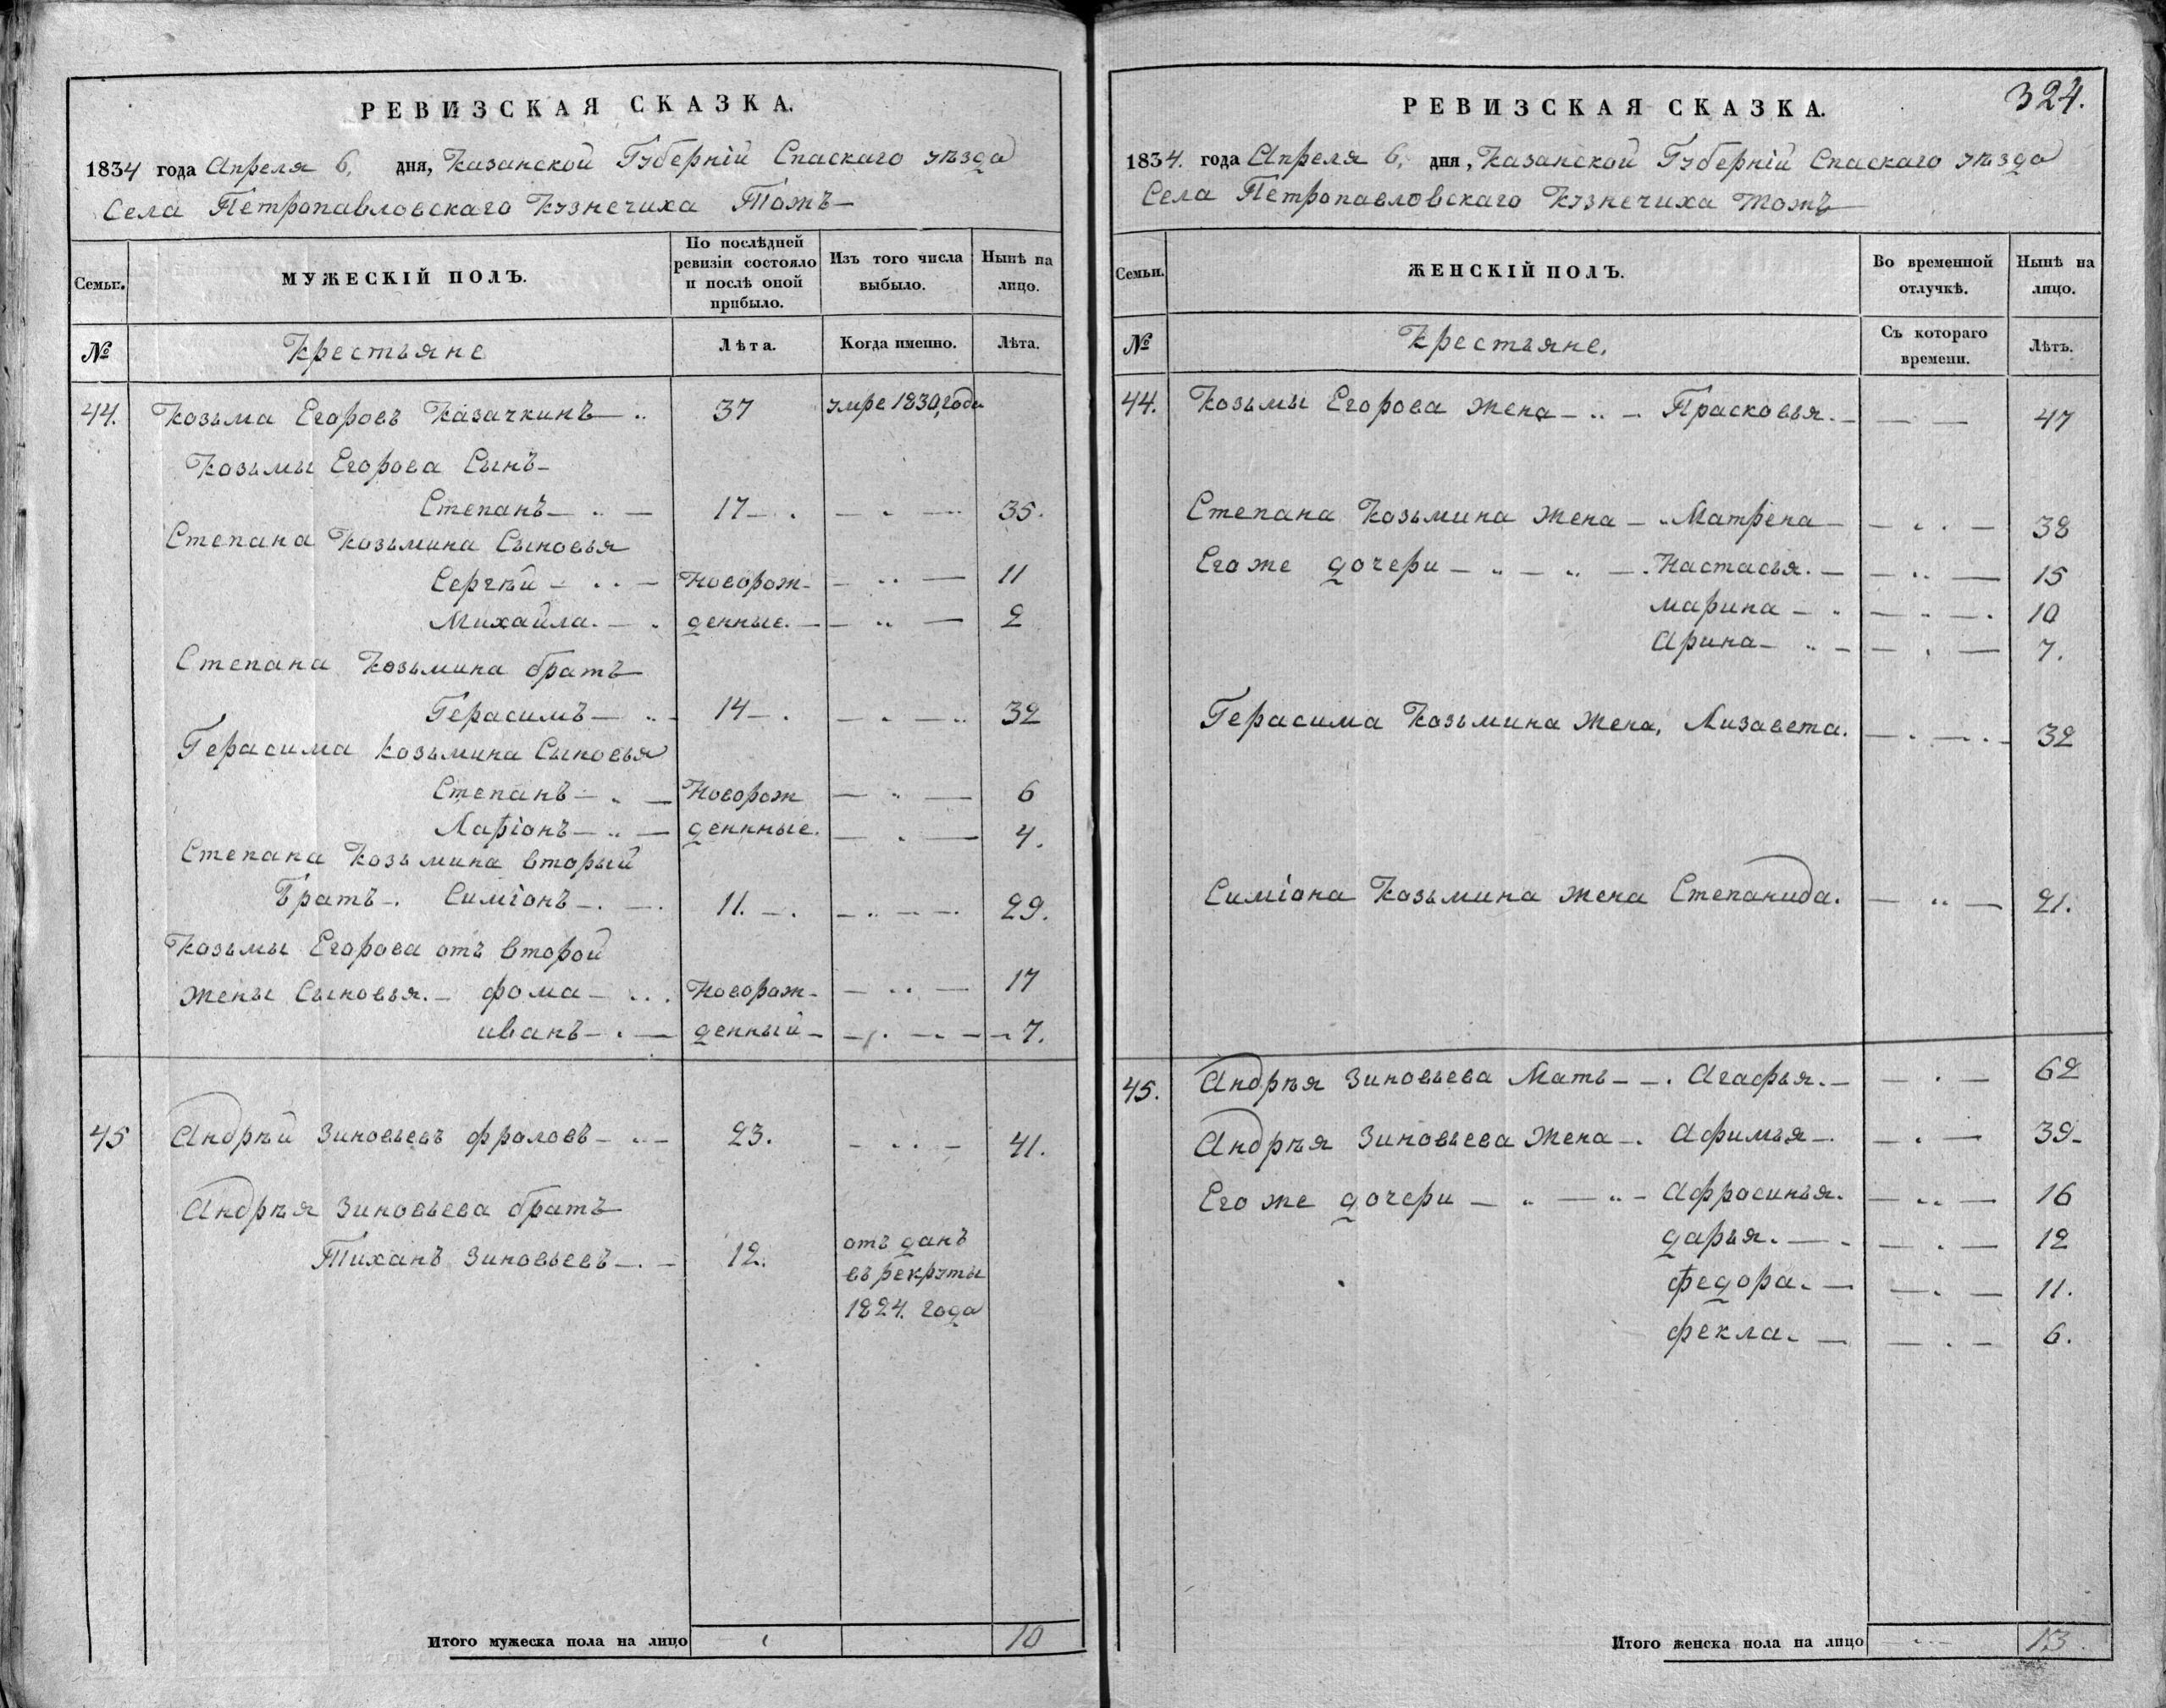 РЕВИЗСКАЯ СКАЗКА.
1834 года Апреля 6, дня, Казанской Губерніи Спаскаго уѣзда
Села Петропавловскаго Кузнечиха Тожъ
Семьи. МУЖЕСКІЙ ПОЛЪ. По послѣдней ревизіи состояло и послѣ оной прибыло. Изъ того числа выбыло. Нынѣ на лицо.
№ Крестьяне Лѣта. Когда именно. Лѣта.
44. Козьма Егоровъ Казачкинъ 37 умре 1830, года
Козьмы Егорова Сынъ
Степанъ 17 35.
Степана Козьмина Сыновья
Сергѣй Новорож- 11
Михайла. денные. 2
Степана Козьмина братъ
Герасимъ 14 32
Герасима Козьмина Сыновья
Степанъ Новорож 6
Ларіонъ деннные. 4.
Степана Козьмина вторый
Братъ. Симіонъ 11. 29.
Козьмы Егорова отъ второй
жены Сыновья. фома Новорож- 17
иванъ денный 7.
45 Андрѣй Зиновьевъ фроловъ 23. 41.
Андрѣя Зиновьева братъ
Тиханъ Зиновьевъ 12. отъ данъ
въ рекруты
1824. года
Итого мужеска пола на лицо 10
324.
РЕВИЗСКАЯ СКАЗКА.
1834. года Апреля 6, дня, Казанской Губерніи Спаскаго уѣзда
Села Петропавловскаго Кузнечиха тожъ
Семьи. ЖЕНСКІЙ ПОЛЪ. Во временной отлучкѣ. Нынѣ на лицо.
№ Крестьяне. Съ котораго времени. Лѣтъ.
44. Козьмы Егорова жена Прасковья. 47
Степана Козьмина жена Матрена 38
Его же дочери Настасья. 15
марина 10
Арина 7.
Герасима Козьмина жена, Лизавета. 32
Симіона Козьмина жена Степанида. 21.
45. Андрѣя Зиновьева Мать Агафья. 62
Андрѣя Зиновьева жена Афимья 39
Его же дочери Афросинья. 16
дарья. 12
федора. 11.
фекла. 6.
Итого женска пола на лицо 13.